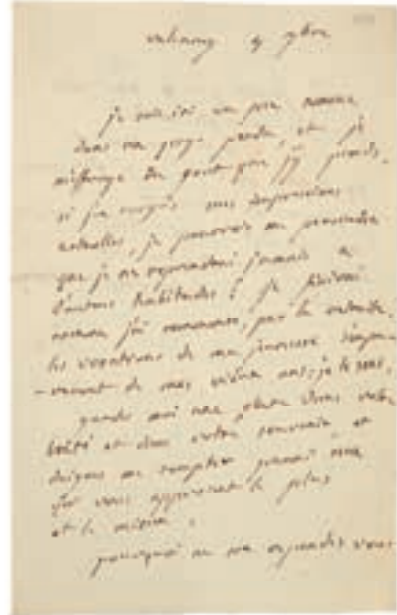 valençay 9 7bre
je suis ici un peu comme
dans un pays perdu, et je
m'effraye du goût que j'y prends.
si j'en croyais mes impressions
actuelles, je pourrais me persuader
que je ne reprendrai jamais
d'autres habitudes; je finirai
comme j'ai commencé, par la retraite.
les vocations de ma jeunesse
de moi, je le sens.
gardez moi une place dans votre
bonté et dans votre souvenir et
daignez me compter parmi ceux
qui vous apprécient le plus
et le mieux.
pourquoi ne me répondez vous